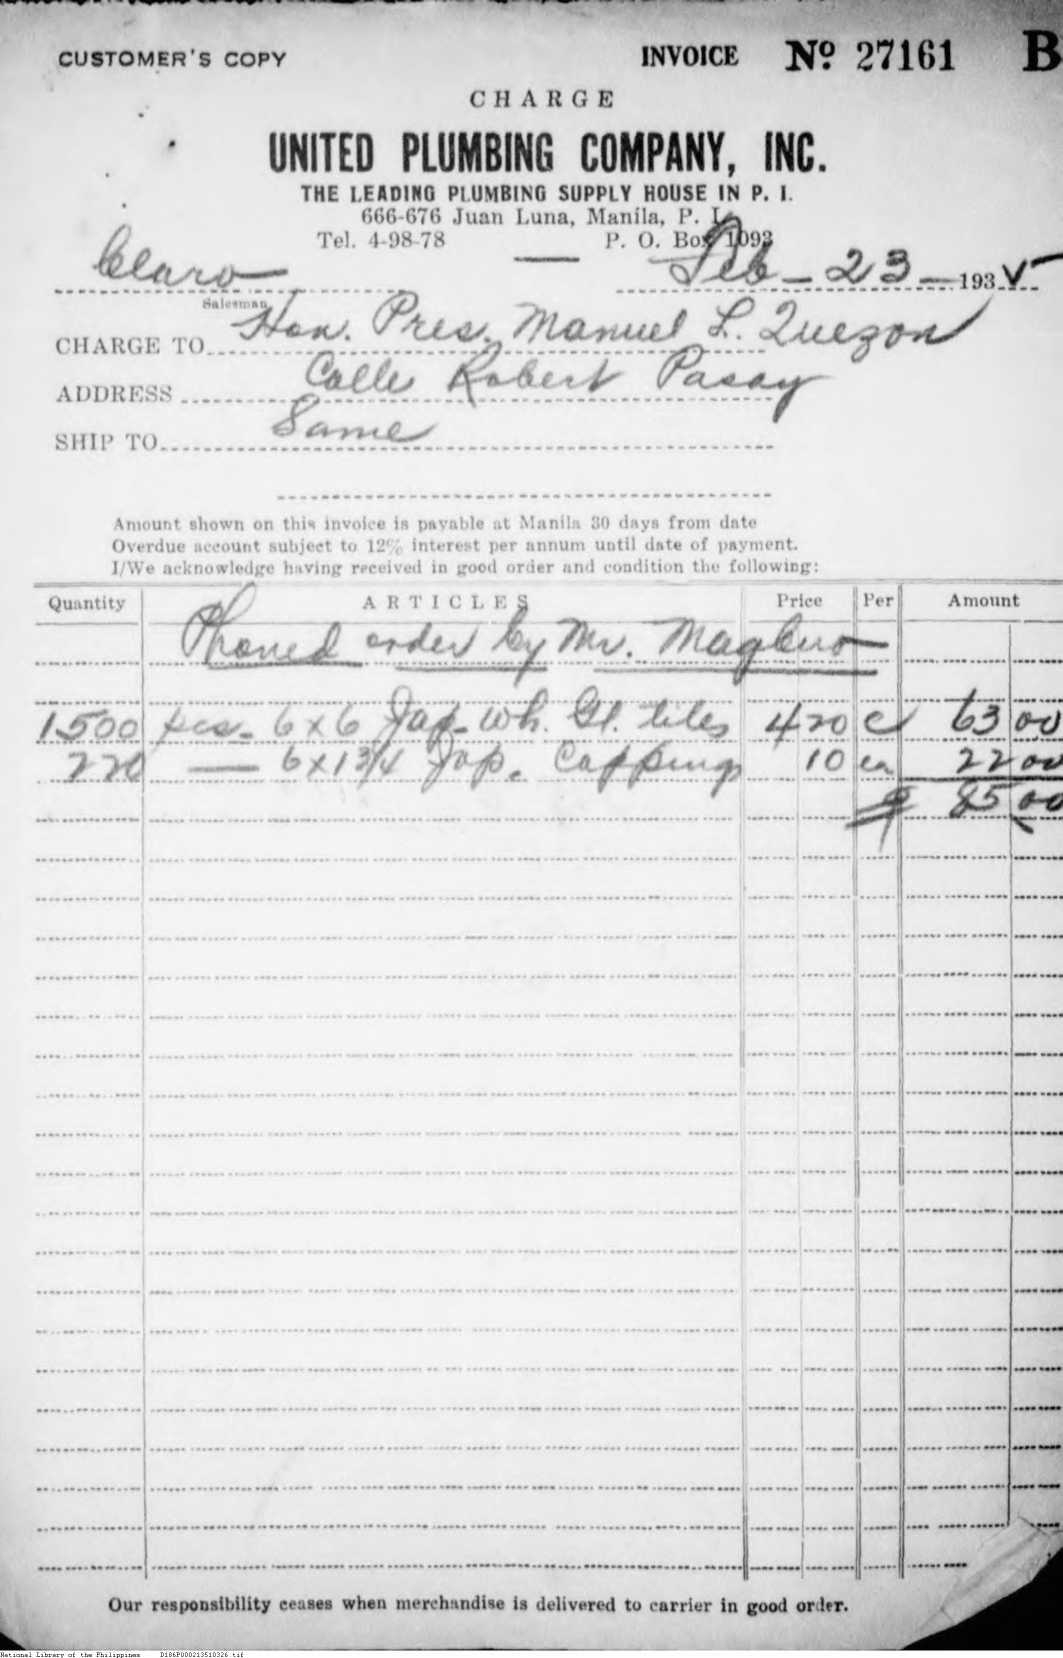 CUSTOMER'S COPY INVOICE Nº 27161 B
CHARGE
UNITED PLUMBING COMPANY, INC.
THE LEADING PLUMBING SUPPLY HOUSE IN P. I.
666-676 Juan Luna, Manila, P. I.
Tel. 4-98-78 P. O. Box 1093
Claro Feb - 23 - 1935
Salesman
CHARGE TO Hon. Pres. Manuel L. Quezon
ADDRESS Calle Robert Pasay
SHIP TO Same
Amount shown on this invoice is payable at Manila 30 days from date
Overdue account subject to 12% interest per annum until date of payment.
I/We acknowledge having received in good order and condition the following:
Quantity ARTICLES Price Per Amount
Phoned order by Mr.
1500 pcs. 6 x 6 Jap. wh. Gl. tiles 4 20 c 63 00
220 — 6 x 1 3/4 Jap. Cappings 10 ea 22 00
₱ 85 00
Our responsibility ceases when merchandise is delivered to carrier in good order.
National Library of the Philippines D186P000213510326.tif